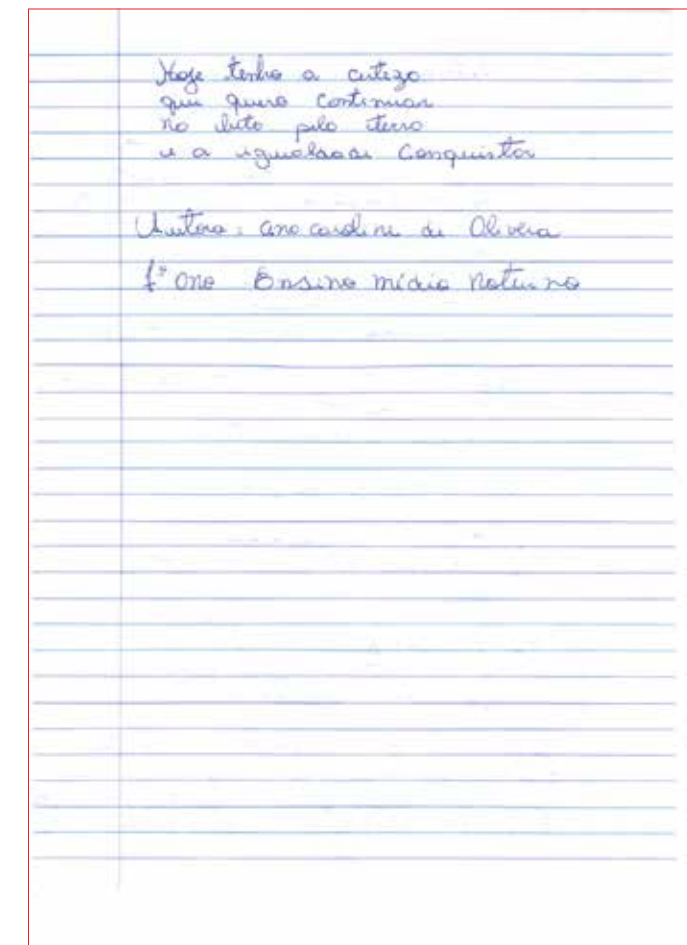 Hoje tenho a certeza
que quero continuar
na luta pela terra
e a igualdade conquistar
Autora: ana caroline de Oliveira
1º ano Ensino médio noturno